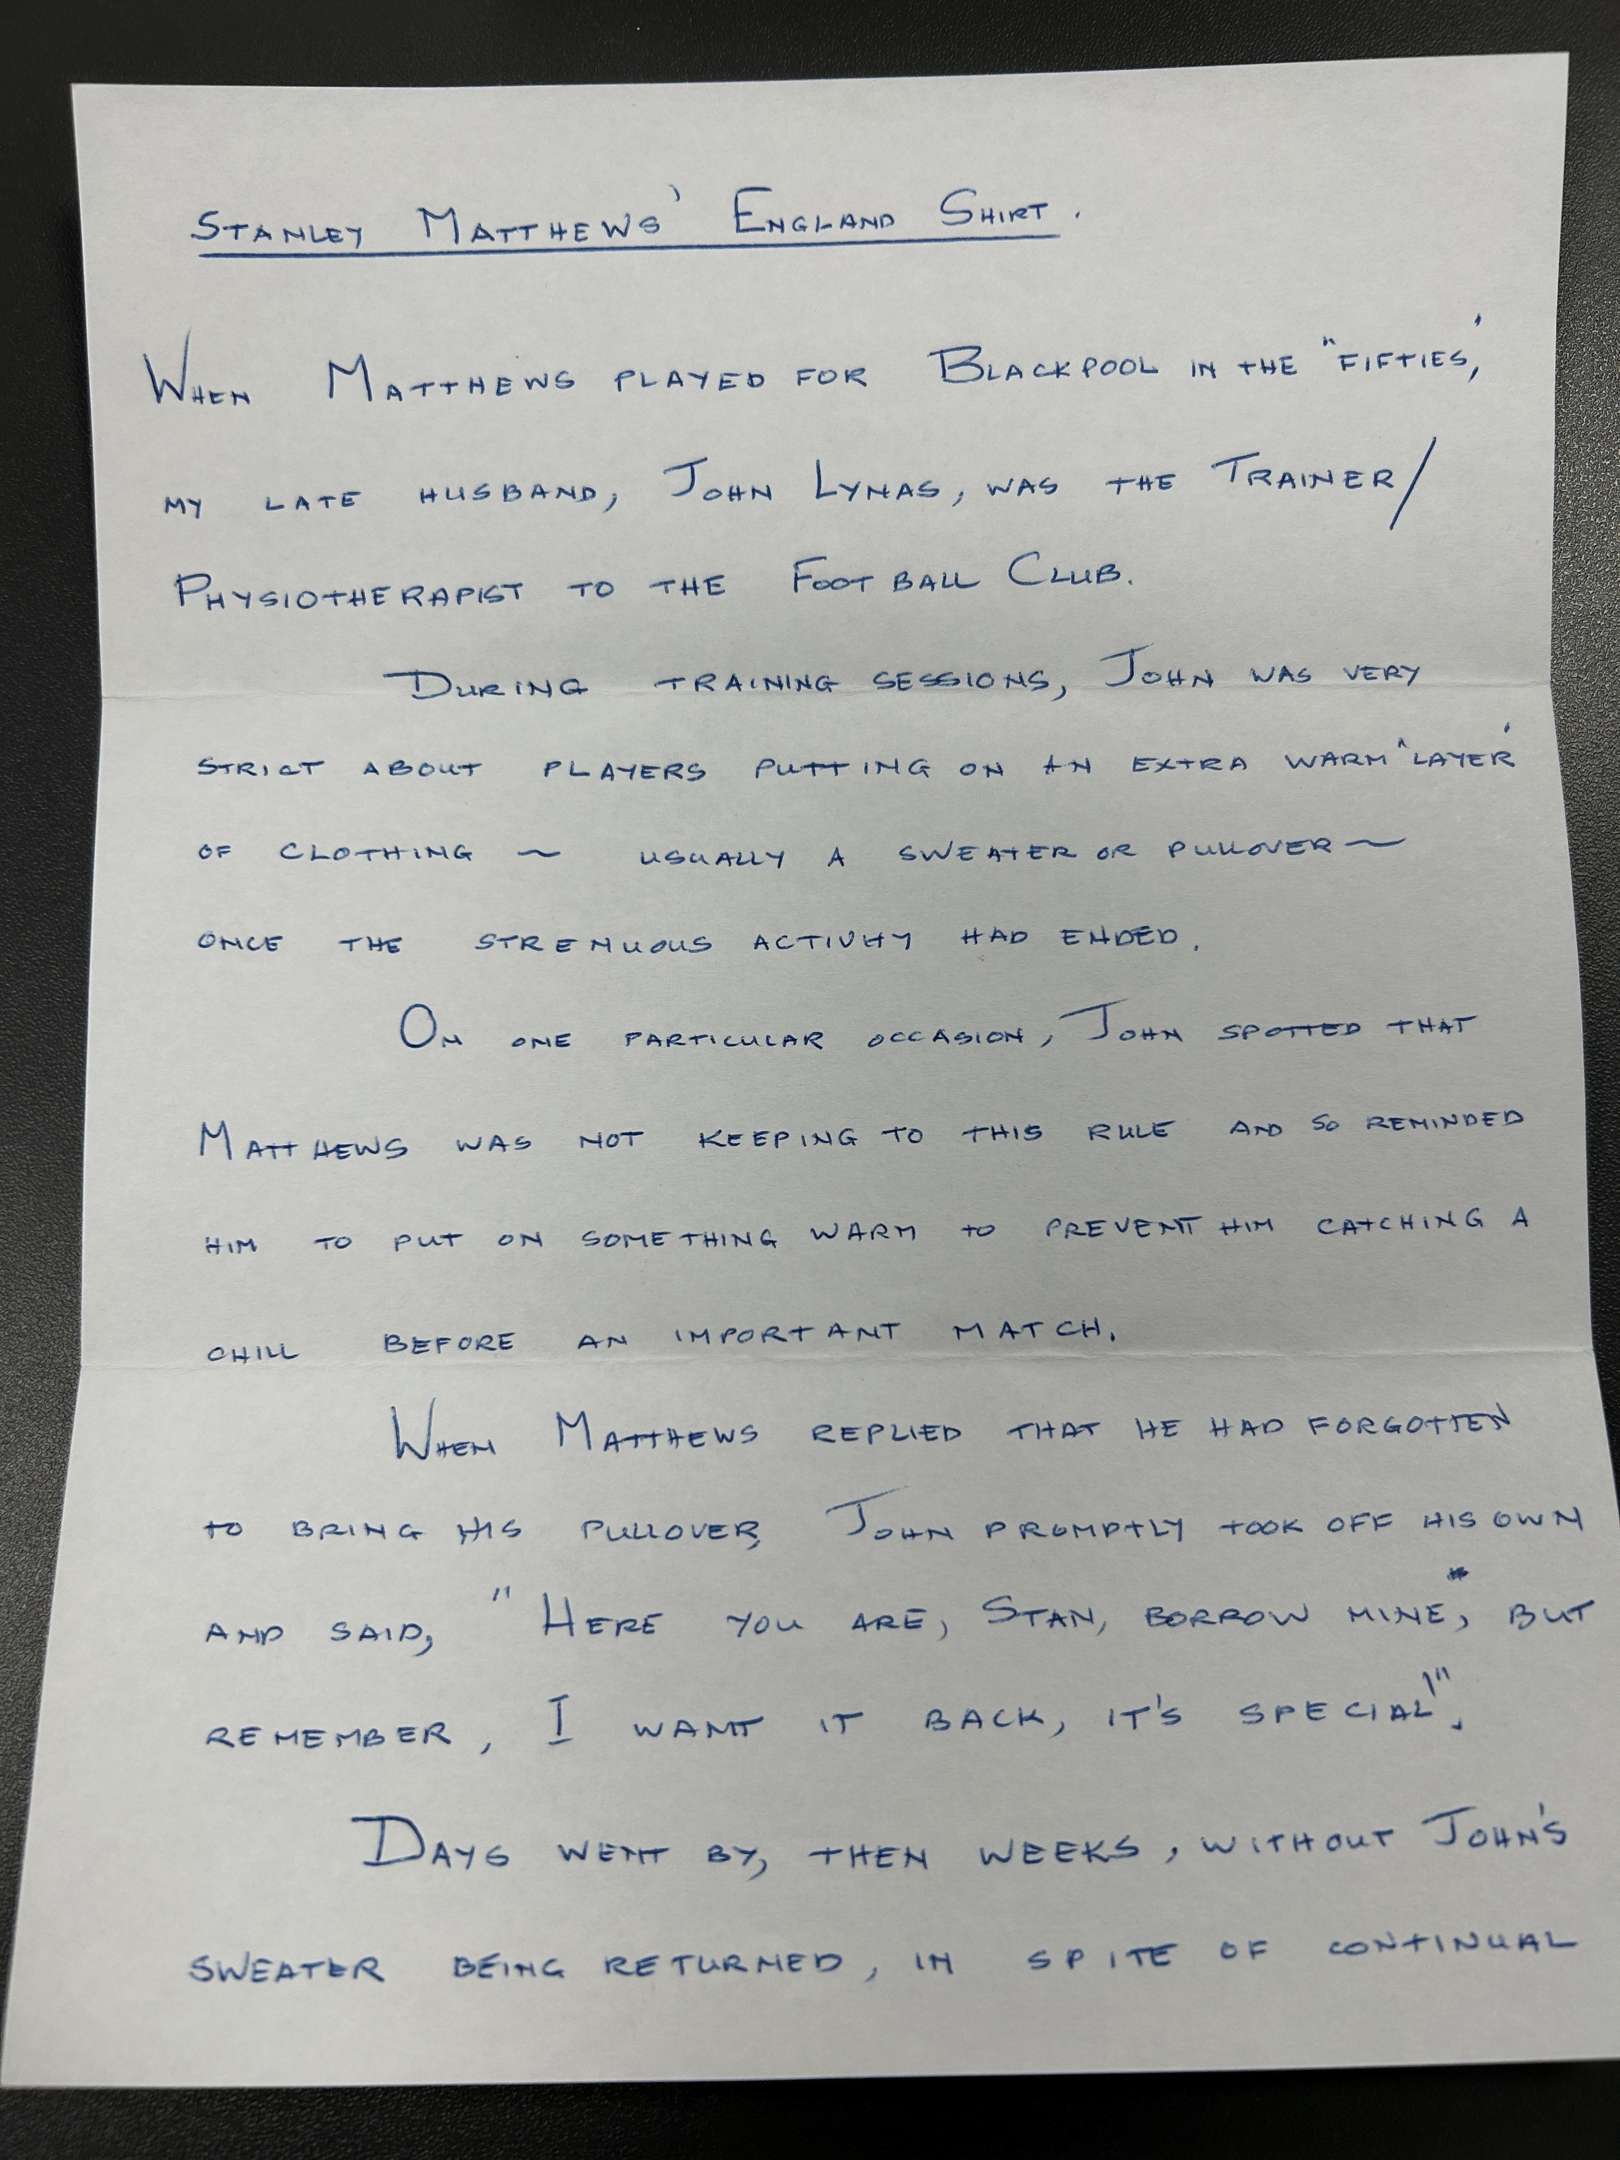 STANLEY MATTHEWS' ENGLAND SHIRT.
WHEN MATTHEWS PLAYED FOR BLACKPOOL IN THE "FIFTIES,'
MY LATE HUSBAND, JOHN LYNAS, WAS THE TRAINER/
PHYSIOTHERAPIST TO THE FOOTBALL CLUB.
DURING TRAINING SESSIONS, JOHN WAS VERY
STRICT ABOUT PLAYERS PUTTING ON AN EXTRA WARM "LAYER'
OF CLOTHING ~ USUALLY A SWEATER OR PULLOVER ~
ONCE THE STRENUOUS ACTIVITY HAD ENDED.
ON ONE PARTICULAR OCCASION, JOHN SPOTTED THAT
MATTHEWS WAS NOT KEEPING TO THIS RULE AND SO REMINDED
HIM TO PUT ON SOMETHING WARM TO PREVENT HIM CATCHING A
CHILL BEFORE AN IMPORTANT MATCH.
WHEN MATTHEWS REPLIED THAT HE HAD FORGOTTEN
TO BRING HIS PULLOVER, JOHN PROMPTLY TOOK OFF HIS OWN
AND SAID, "HERE YOU ARE, STAN, BORROW MINE, BUT
REMEMBER, I WANT IT BACK, IT'S SPECIAL!".
DAYS WENT BY, THEN WEEKS, WITHOUT JOHN'S
SWEATER BEING RETURNED, IN SPITE OF CONTINUAL